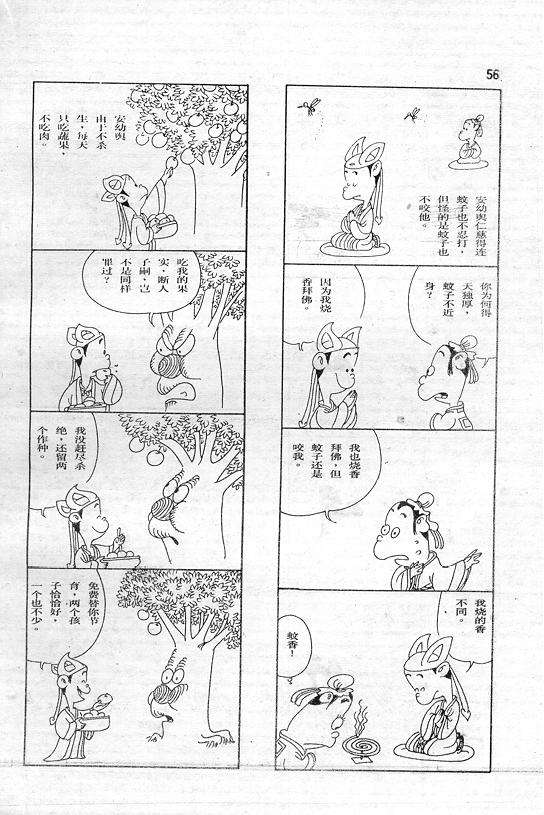 56
安幼舆仁慈得连
蚊子也不忍打，
但怪的是蚊子也
不咬他。
你为何得
天独厚，
蚊子不近
身？
因为我烧
香拜佛。
我也烧香
拜佛，但
蚊子还是
咬我。
我烧的香
不同。
蚊香！
安幼舆
由于不杀
生，每天
只吃蔬果，
不吃肉。
吃我的果
实，断人
子嗣，岂
不是同样
罪过？
我没赶尽杀
绝，还留两
个作种。
免费替你节
育，两个孩
子恰恰好，
一个也不少。